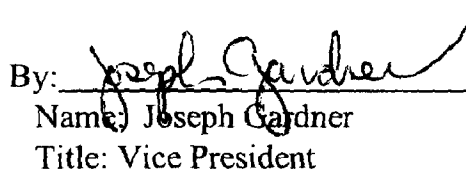 By: Joseph Gardner
Name: Joseph Gardner
Title: Vice President